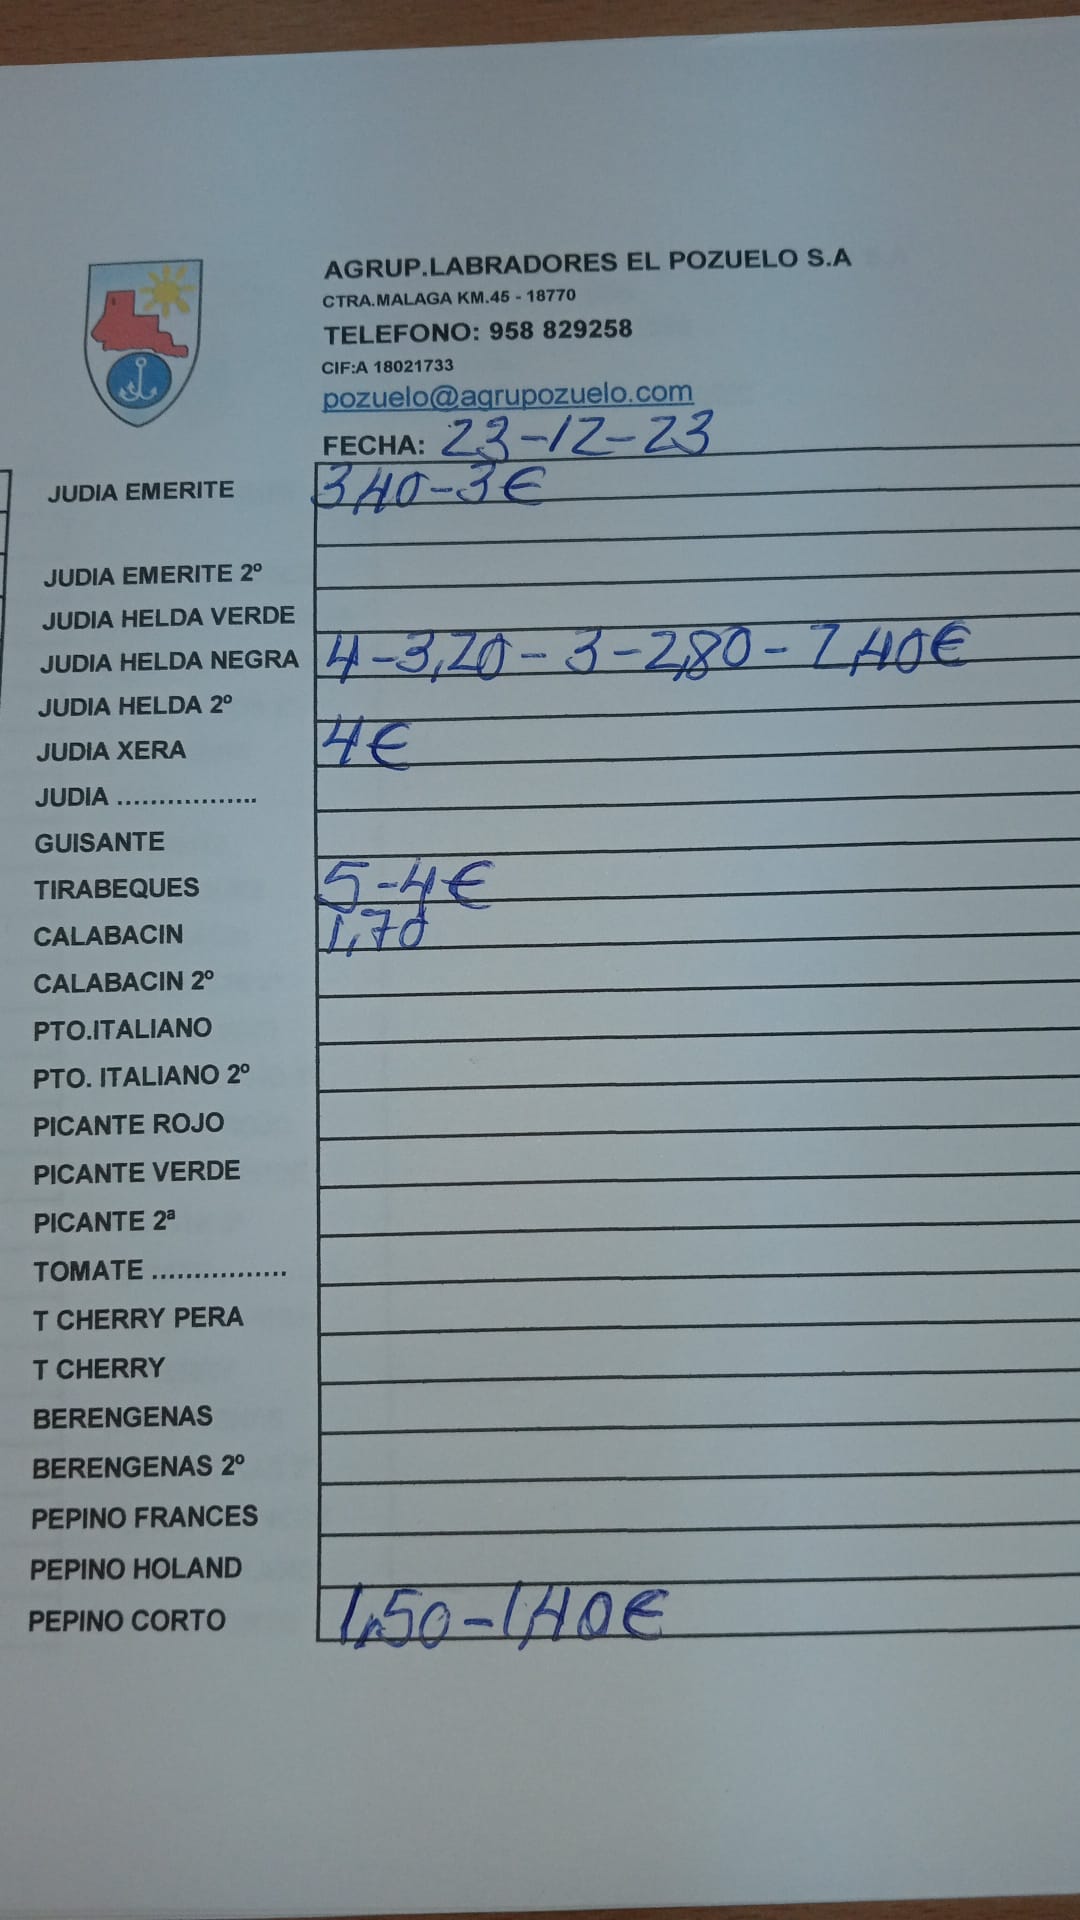 AGRUP.LABRADORES EL POZUELO S.A
CTRA.MALAGA KM.45 - 18770
TELEFONO: 958 829258
CIF:A 18021733
pozuelo@agrupozuelo.com
FECHA: 23-12-23
JUDIA EMERITE 3,40-3€
JUDIA EMERITE 2º
JUDIA HELDA VERDE
JUDIA HELDA NEGRA 4-3,20-3-2,80-2,40€
JUDIA HELDA 2º
JUDIA XERA 4€
JUDIA .................
GUISANTE
TIRABEQUES 5-4€
CALABACIN 1,70
CALABACIN 2º
PTO.ITALIANO
PTO. ITALIANO 2º
PICANTE ROJO
PICANTE VERDE
PICANTE 2ª
TOMATE ................
T CHERRY PERA
T CHERRY
BERENGENAS
BERENGENAS 2º
PEPINO FRANCES
PEPINO HOLAND
PEPINO CORTO 1,50-1,40€